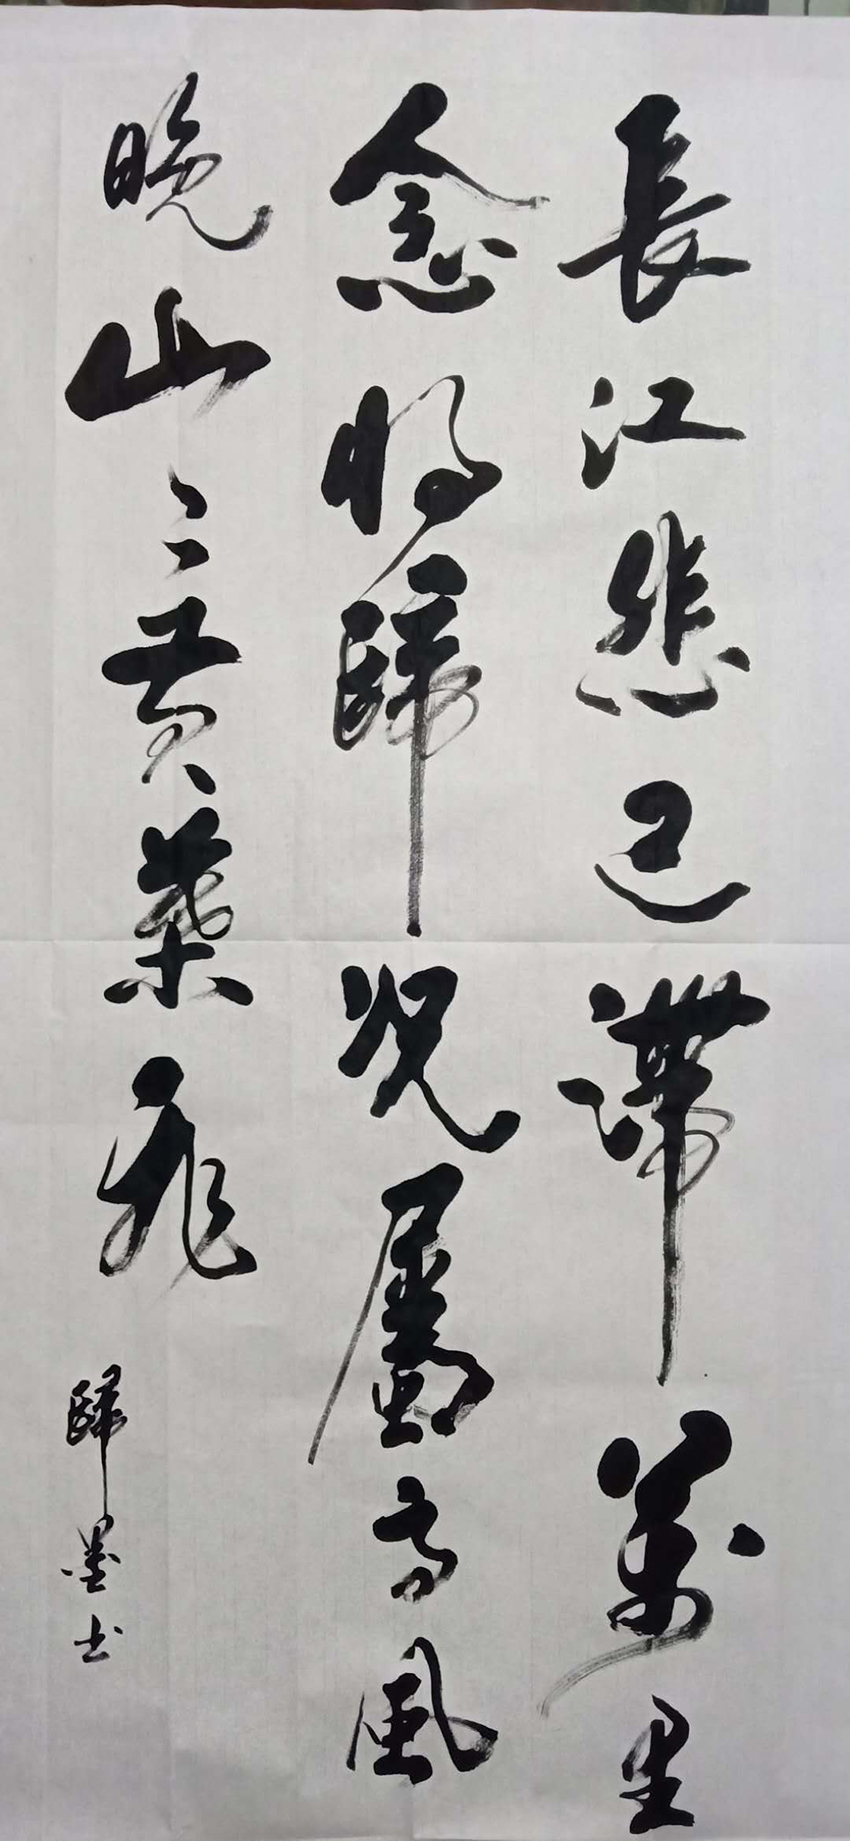 長江悲已滯萬里
念將歸況屬高風
晚山〻黃葉飛
歸墨书